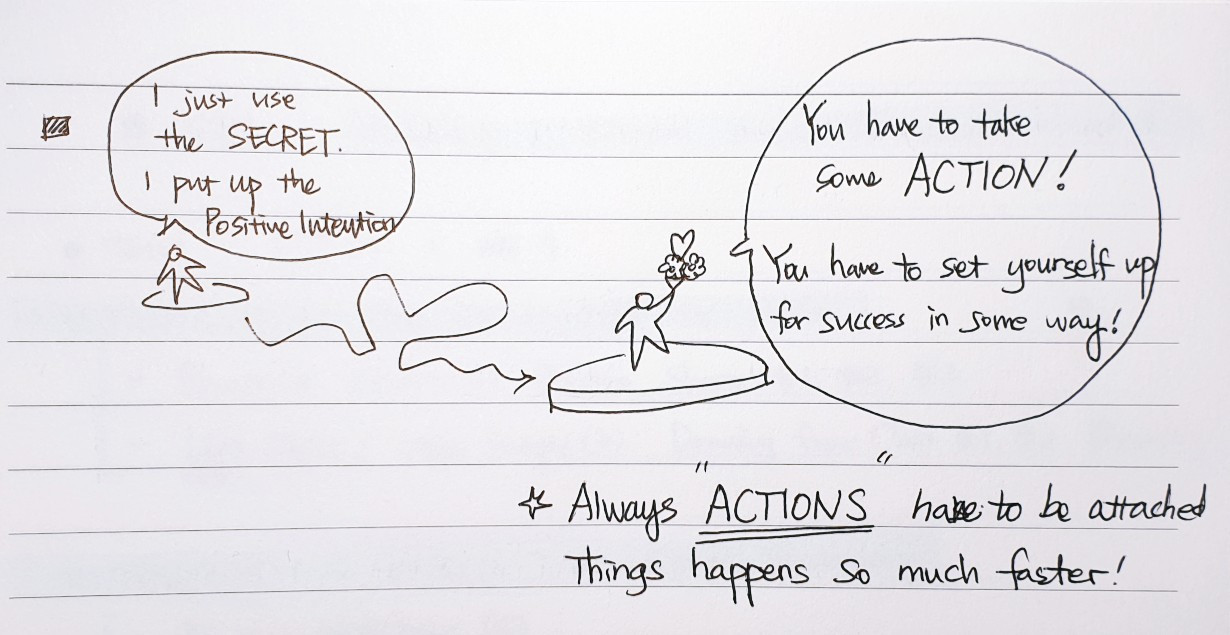 I just use
the SECRET.
I put up the
Positive Intention
You have to take
some ACTION!
You have to set yourself up
for success in some way!
☆ Always "ACTIONS" have to be attached
Things happens so much faster!